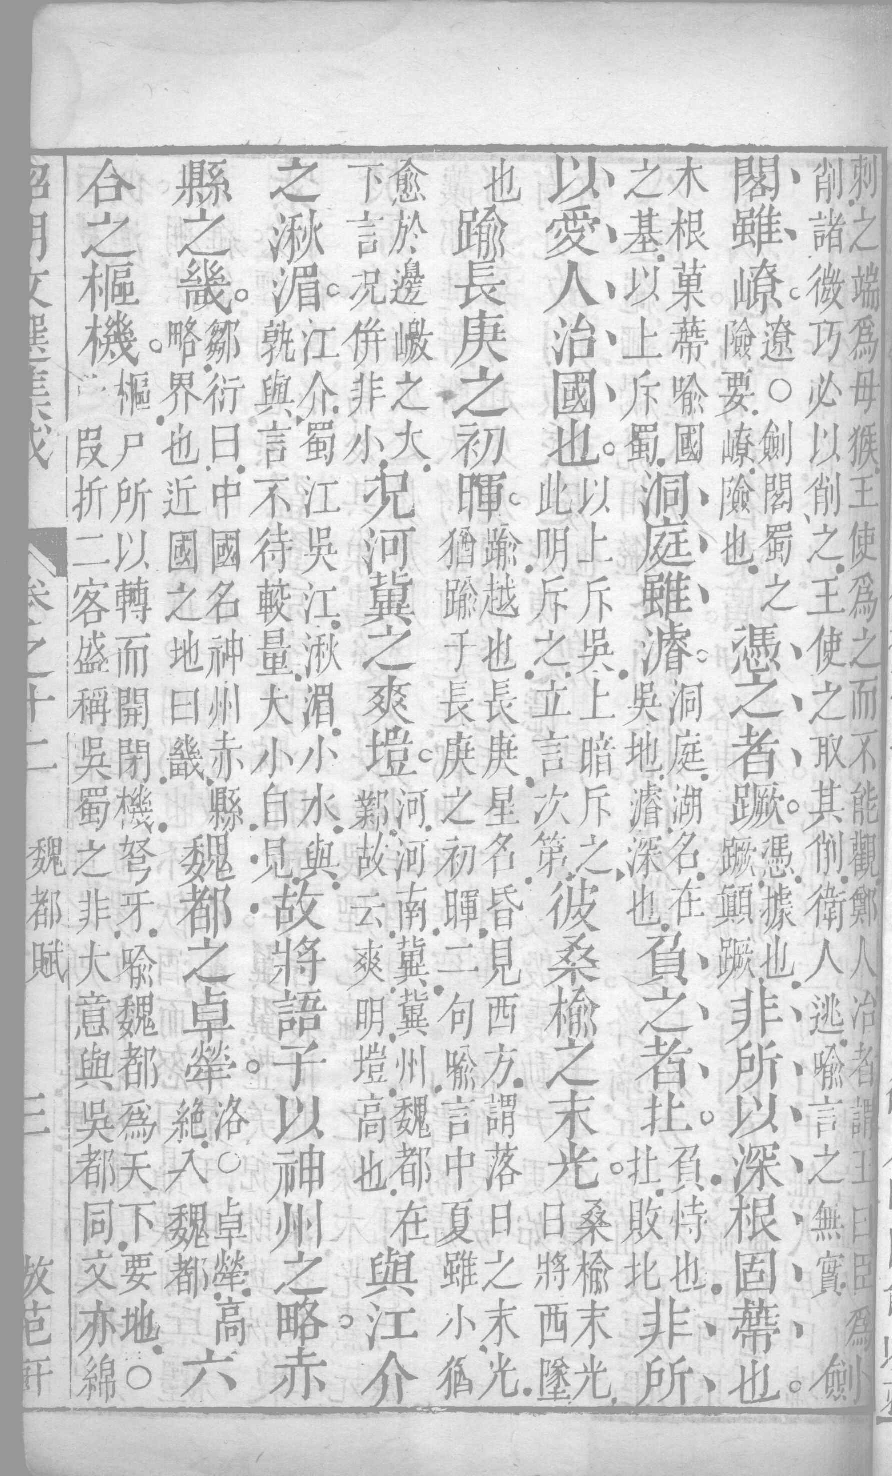 刺之端爲母猴王使爲之而不能觀鄭人冶者謂王曰臣爲
削諸微巧必以削之王使之取其倒衛人逃喻言之無實　劍
閣雖嶛。遼○劍閣蜀之險要嶛險也憑之者蹶。憑據也蹶顛蹶非所以深根固蔕也。
木根菓蔕喻國之基以上斥蜀洞庭雖濬。洞庭湖名在吳地濬深也負之者北。負恃也北敗北非所
以愛人治國也。以上斥吳上暗斥之此明斥之立言次第彼桑榆之末光。桑榆末光日將西墜
也踰長庚之初暉。踰越也長庚星名昏見西方謂落日之末光猶踰于長庚之初暉二句喻言中夏雖小猶
愈於邊徼之大下言况併非小况河冀之爽塏。河河南冀冀州魏都在鄴故云爽明塏高也與江介
之湫湄。江介蜀江吳江湫湄小水與孰與言不待較量大小自見故將語子以神州之略。赤
縣之畿。鄒衍曰中國名神州赤縣略界也近國之地曰畿魏都之卓犖。洛○卓犖高絶入魏都六
合之樞機。樞戸所以轉而開閉機弩牙喻魏都爲天下要地○一叚折二客盛稱吳蜀之非大意與吳都同文亦綿
昭明文選集成　卷之十二　魏都賦　三　倣范軒